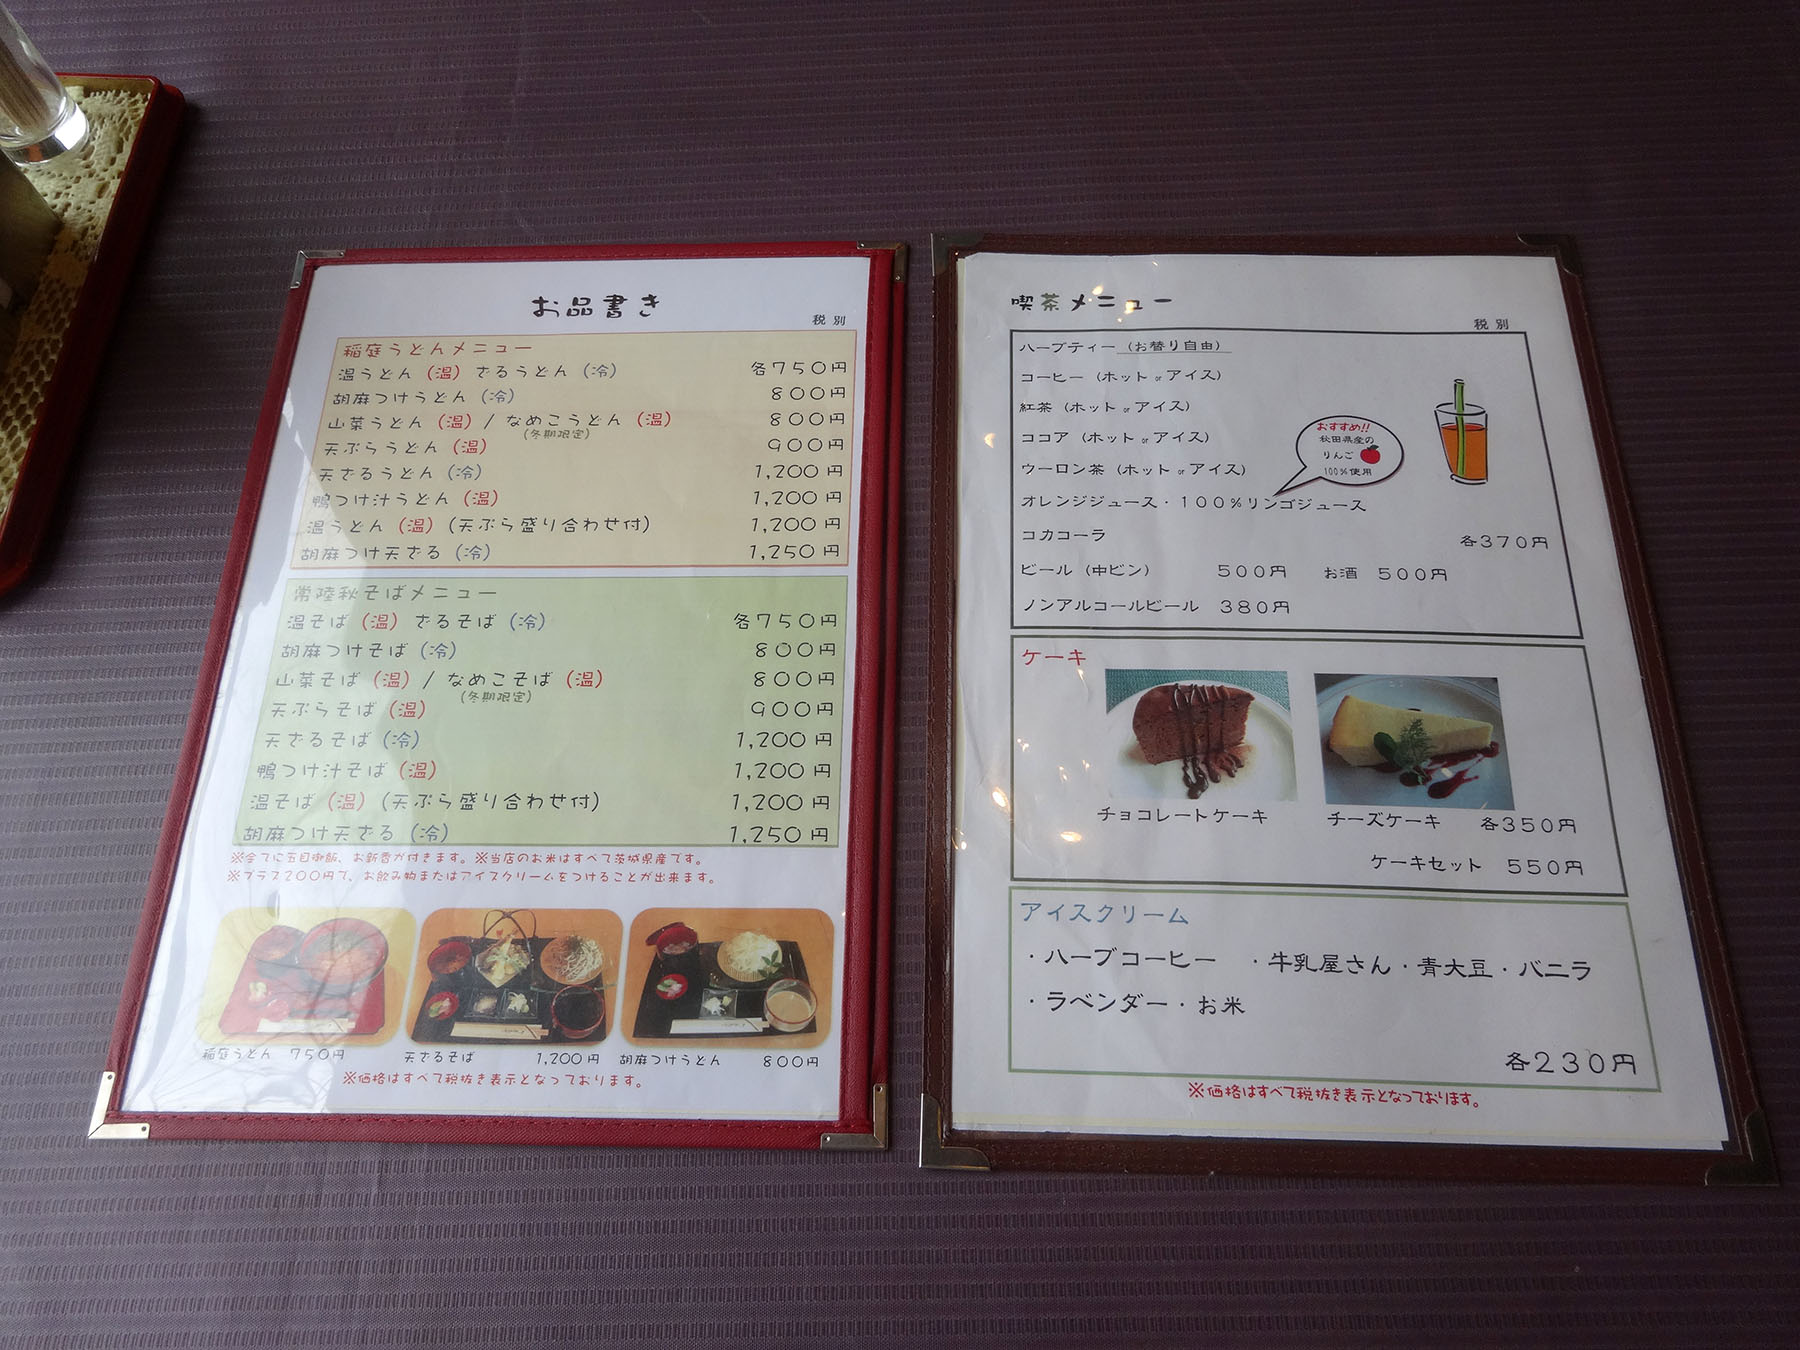 お品書き
税別
稲庭うどんメニュー
温うどん（温）ざるうどん（冷） 各750円
胡麻つけうどん（冷） 800円
山菜うどん（温）/ なめこうどん（温） 800円
（冬期限定）
天ぷらうどん（温） 900円
天ざるうどん（冷） 1,200円
鴨つけ汁うどん（温） 1,200円
温うどん（温）（天ぷら盛り合わせ付） 1,200円
胡麻つけ天ざる（冷） 1,250円
常陸秋そばメニュー
温そば（温）ざるそば（冷） 各750円
胡麻つけそば（冷） 800円
山菜そば（温）/ なめこそば（温） 800円
（冬期限定）
天ぷらそば（温） 900円
天ざるそば（冷） 1,200円
鴨つけ汁そば（温） 1,200円
温そば（温）（天ぷら盛り合わせ付） 1,200円
胡麻つけ天ざる（冷） 1,250円
※全てに五目御飯、お新香が付きます。※当店のお米はすべて茨城県産です。
※プラス200円で、お飲み物またはアイスクリームをつけることが出来ます。
稲庭うどん 750円
天ざるそば 1,200円
胡麻つけうどん 800円
※価格はすべて税抜き表示となっております。
喫茶メニュー
税別
ハーブティー（お替り自由）
コーヒー（ホット or アイス）
紅茶（ホット or アイス）
ココア（ホット or アイス）
ウーロン茶（ホット or アイス）
おすすめ!!
秋田県産の
りんご
100％使用
オレンジジュース・100％リンゴジュース
コカコーラ 各370円
ビール（中ビン） 500円 お酒 500円
ノンアルコールビール 380円
ケーキ
チョコレートケーキ チーズケーキ 各350円
ケーキセット 550円
アイスクリーム
・ハーブコーヒー ・牛乳屋さん・青大豆・バニラ
・ラベンダー・お米
各230円
※価格はすべて税抜き表示となっております。